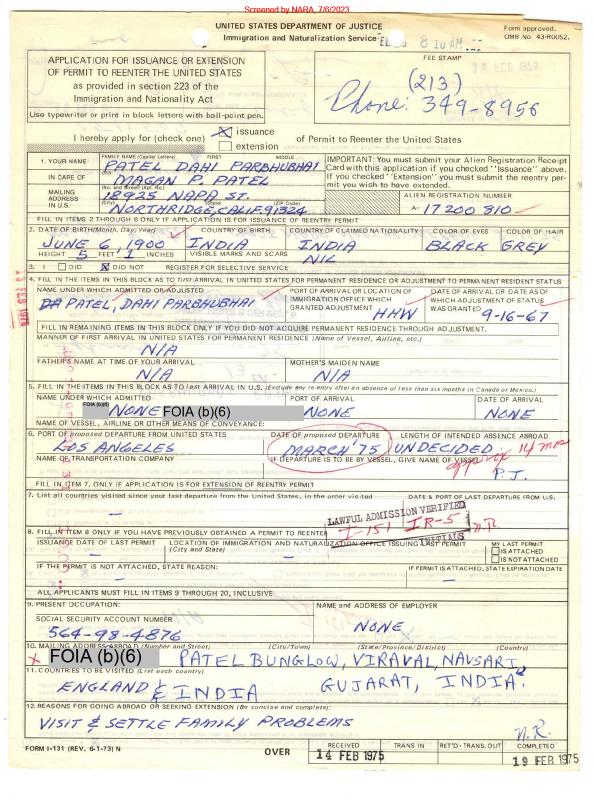 Screened by NARA, 7/6/2023
UNITED STATES DEPARTMENT OF JUSTICE
Immigration and Naturalization Service
Form approved.
OMB No 43-R0052.
8 10 AM
APPLICATION FOR ISSUANCE OR EXTENSION
OF PERMIT TO REENTER THE UNITED STATES
as provided in section 223 of the
Immigration and Nationality Act
Use typewriter or print in block letters with ball-point pen.
FEE STAMP
(213)
Phone: 349-8956
I hereby apply for (check one) X issuance
extension
of Permit to Reenter the United States
1. YOUR NAME FAMILY NAME (Capital Letters) FIRST MIDDLE
PATEL DAHI PARBHUBHAI
IN CARE OF C/O
MAGAN P PATEL
MAILING ADDRESS IN U.S. (No. and Street) (Apt. No.)
18925 NAPA ST.
(City) (State) (ZIP Code)
NORTHRIDGE, CALIF. 91324
IMPORTANT: You must submit your Alien Registration Receipt
Card with this application if you checked "Issuance" above.
If you checked "Extension" you must submit the reentry per-
mit you wish to have extended.
ALIEN REGISTRATION NUMBER
A- 17 200 810
FILL IN ITEMS 2 THROUGH 5 ONLY IF APPLICATION IS FOR ISSUANCE OF REENTRY PERMIT
2. DATE OF BIRTH (Month, Day, Year) COUNTRY OF BIRTH COUNTRY OF CLAIMED NATIONALITY COLOR OF EYES COLOR OF HAIR
JUNE 6, 1900 INDIA INDIA BLACK GREY
HEIGHT 5 FEET 1 INCHES VISIBLE MARKS AND SCARS NIL
3. I DID X DID NOT REGISTER FOR SELECTIVE SERVICE
4. FILL IN THE ITEMS IN THIS BLOCK AS TO first ARRIVAL IN UNITED STATES FOR PERMANENT RESIDENCE OR ADJUSTMENT TO PERMANENT RESIDENT STATUS
NAME UNDER WHICH ADMITTED OR ADJUSTED
DA PATEL, DAHI PARBHUBHAI
PORT OF ARRIVAL OR LOCATION OF
IMMIGRATION OFFICE WHICH
GRANTED ADJUSTMENT HHW
DATE OF ARRIVAL OR DATE AS OF
WHICH ADJUSTMENT OF STATUS
WAS GRANTED 9-16-67
FILL IN REMAINING ITEMS IN THIS BLOCK ONLY IF YOU DID NOT ACQUIRE PERMANENT RESIDENCE THROUGH ADJUSTMENT.
MANNER OF FIRST ARRIVAL IN UNITED STATES FOR PERMANENT RESIDENCE (Name of Vessel, Airline, etc.)
N/A
FATHER'S NAME AT TIME OF YOUR ARRIVAL MOTHER'S MAIDEN NAME
N/A N/A
5. FILL IN THE ITEMS IN THIS BLOCK AS TO last ARRIVAL IN U.S. (Exclude any re-entry after an absence of less than six months in Canada or Mexico.)
NAME UNDER WHICH ADMITTED PORT OF ARRIVAL DATE OF ARRIVAL
FOIA (b)(6) NONE FOIA (b)(6) NONE NONE
NAME OF VESSEL, AIRLINE OR OTHER MEANS OF CONVEYANCE:
6. PORT OF proposed DEPARTURE FROM UNITED STATES DATE OF proposed DEPARTURE LENGTH OF INTENDED ABSENCE ABROAD
LOS ANGELES MARCH '75 UNDECIDED approx 14 mos
NAME OF TRANSPORTATION COMPANY IF DEPARTURE IS TO BE BY VESSEL, GIVE NAME OF VESSEL
P.J.
FILL IN ITEM 7, ONLY IF APPLICATION IS FOR EXTENSION OF REENTRY PERMIT
7. List all countries visited since your last departure from the United States, in the order visited DATE & PORT OF LAST DEPARTURE FROM U.S.
—
—
LAWFUL ADMISSION VERIFIED
I-151 IR-5 N.R.
INITIALS
8. FILL IN ITEM 8 ONLY IF YOU HAVE PREVIOUSLY OBTAINED A PERMIT TO REENTER
ISSUANCE DATE OF LAST PERMIT LOCATION OF IMMIGRATION AND NATURALIZATION OFFICE ISSUING LAST PERMIT
(City and State)
MY LAST PERMIT
IS ATTACHED
IS NOT ATTACHED
— —
IF THE PERMIT IS NOT ATTACHED, STATE REASON: IF PERMIT IS ATTACHED, STATE EXPIRATION DATE
— —
ALL APPLICANTS MUST FILL IN ITEMS 9 THROUGH 20, INCLUSIVE
9. PRESENT OCCUPATION: NAME and ADDRESS OF EMPLOYER
NONE
SOCIAL SECURITY ACCOUNT NUMBER
564-98-4876
10. MAILING ADDRESS ABROAD (Number and Street) (City/Town) (State/Province/District) (Country)
X FOIA (b)(6) PATEL BUNGLOW, VIRAVAL, NAVSARI,
GUJARAT, INDIA.
11. COUNTRIES TO BE VISITED (List each country)
ENGLAND & INDIA
12. REASONS FOR GOING ABROAD OR SEEKING EXTENSION (Be concise and complete):
VISIT & SETTLE FAMILY PROBLEMS
N.R.
FORM I-131 (REV. 6-1-73) N
OVER
RECEIVED TRANS IN RET'D-TRANS. OUT COMPLETED
14 FEB 1975 19 FEB 1975